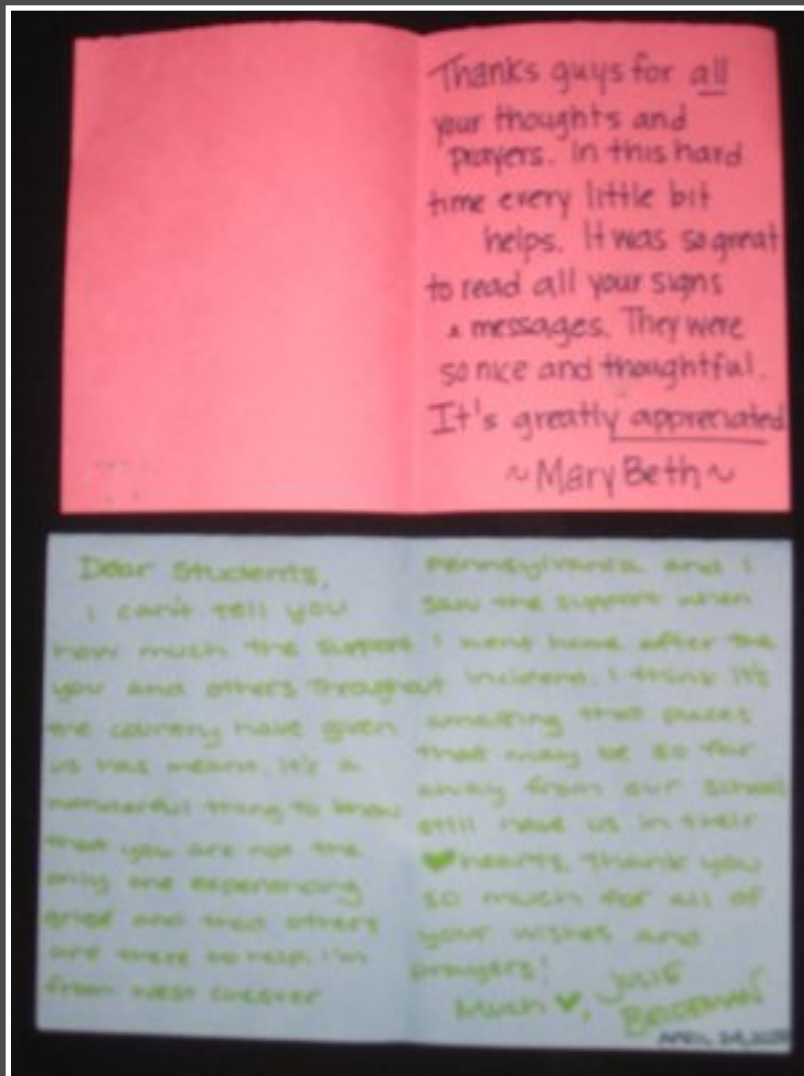 Thanks guys for all
your thoughts and
prayers. In this hard
time every little bit
helps. It was so great
to read all your signs
messages. They were
so nice and thoughtful.
It's greatly appreciated
~Mary Beth~
Dear Students,
I can't tell you
how much the support
you and others throughout
the country have given
us has meant. It's a
wonderful thing to know
that you are not the
only one experiencing
grief and that others
are there to help. I'm
from West Chester
Pennsylvania and I
saw the support when
I went home after the
incident. I think it's
amazing that places
that may be so far
away from our school
still have us in their
♥hearts. Thank you
so much for all of
your wishes and
prayers!
Much ♥, Julie
APRIL